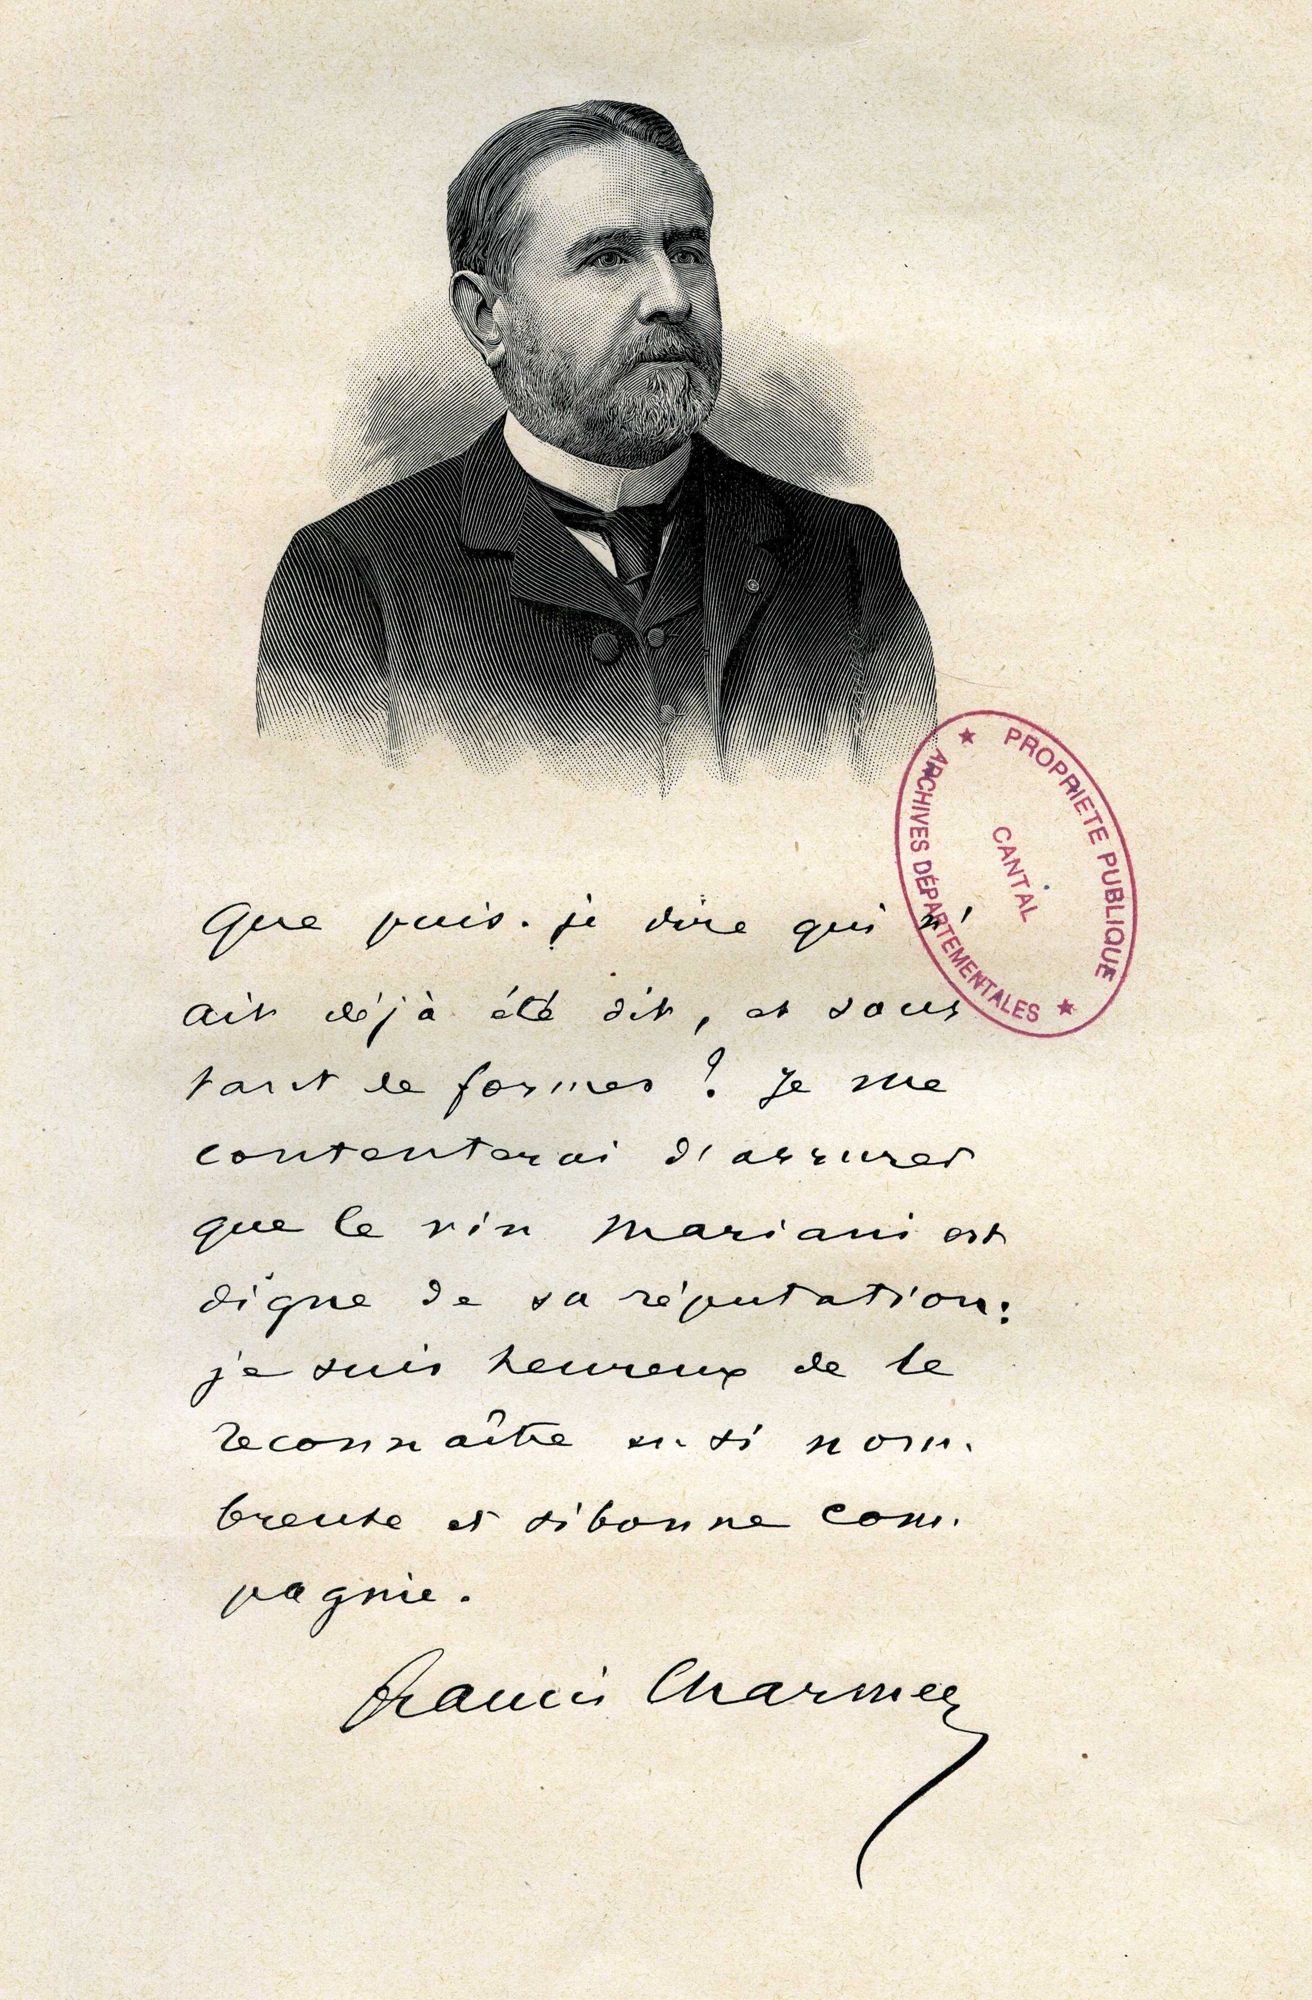 PROPRIETE PUBLIQUE
CANTAL
ARCHIVES DÉPARTEMENTALES
Que puis-je dire qui n'
ait déjà été dit, et sous
tant de formes ? Je me
contenterai d'assurer
que le vin Mariani est
digne de sa réputation :
je suis heureux de le
reconnaître en si nom-
breuse et si bonne com-
pagnie.
Francis Charmes